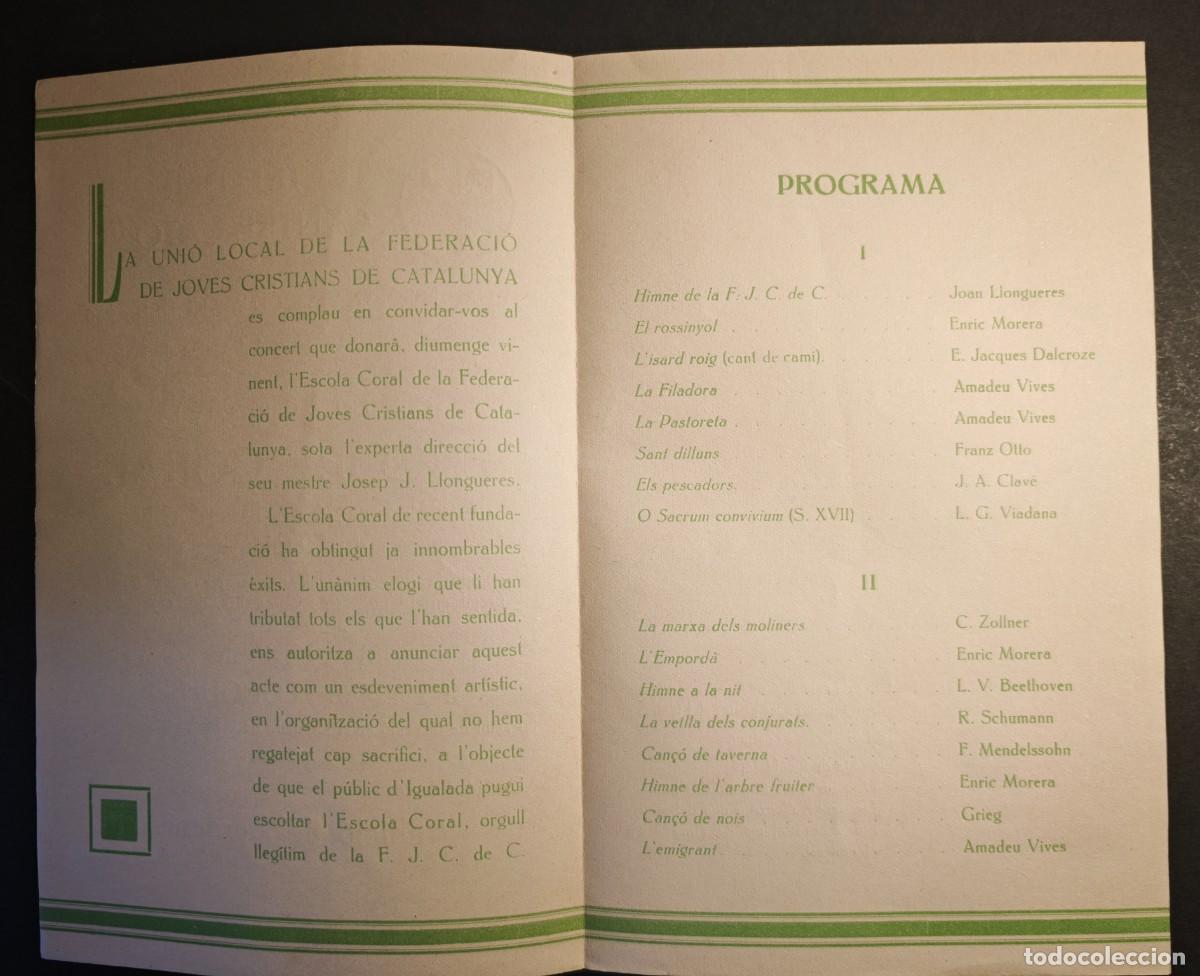 LA UNIÓ LOCAL DE LA FEDERACIÓ
DE JOVES CRISTIANS DE CATALUNYA
es complau en convidar-vos al
concert que donarà, diumenge vi-
nent, l'Escola Coral de la Federa-
ció de Joves Cristians de Cata-
lunya, sota l'experta direcció del
seu mestre Josep J. Llongueres.
L'Escola Coral de recent funda-
ció ha obtingut ja innombrables
èxits. L'unànim elogi que li han
tributat tots els que l'han sentida,
ens autoritza a anunciar aquest
acte com un esdeveniment artístic,
en l'organització del qual no hem
regatejat cap sacrifici, a l'objecte
de que el públic d'Igualada pugui
escoltar l'Escola Coral, orgull
llegítim de la F. J. C. de C.
PROGRAMA
I
Himne de la F. J. C. de C. . . . . . Joan Llongueres
El rossinyol . . . . . . . Enric Morera
L'isard roig (cant de camí). . . . . . E. Jacques Dalcroze
La Filadora . . . . . . . Amadeu Vives
La Pastoreta . . . . . . . Amadeu Vives
Sant dilluns . . . . . . . Franz Otto
Els pescadors. . . . . . . J. A. Clavé
O Sacrum convivium (S. XVII) . . . . L. G. Viadana
II
La marxa dels moliners . . . . . C. Zollner
L'Empordà . . . . . . . Enric Morera
Himne a la nit . . . . . . . L. V. Beethoven
La vetlla dels conjurats. . . . . . R. Schumann
Cançó de taverna . . . . . . F. Mendelssohn
Himne de l'arbre fruiter . . . . . Enric Morera
Cançó de nois . . . . . . . Grieg
L'emigrant . . . . . . . Amadeu Vives
todocoleccion